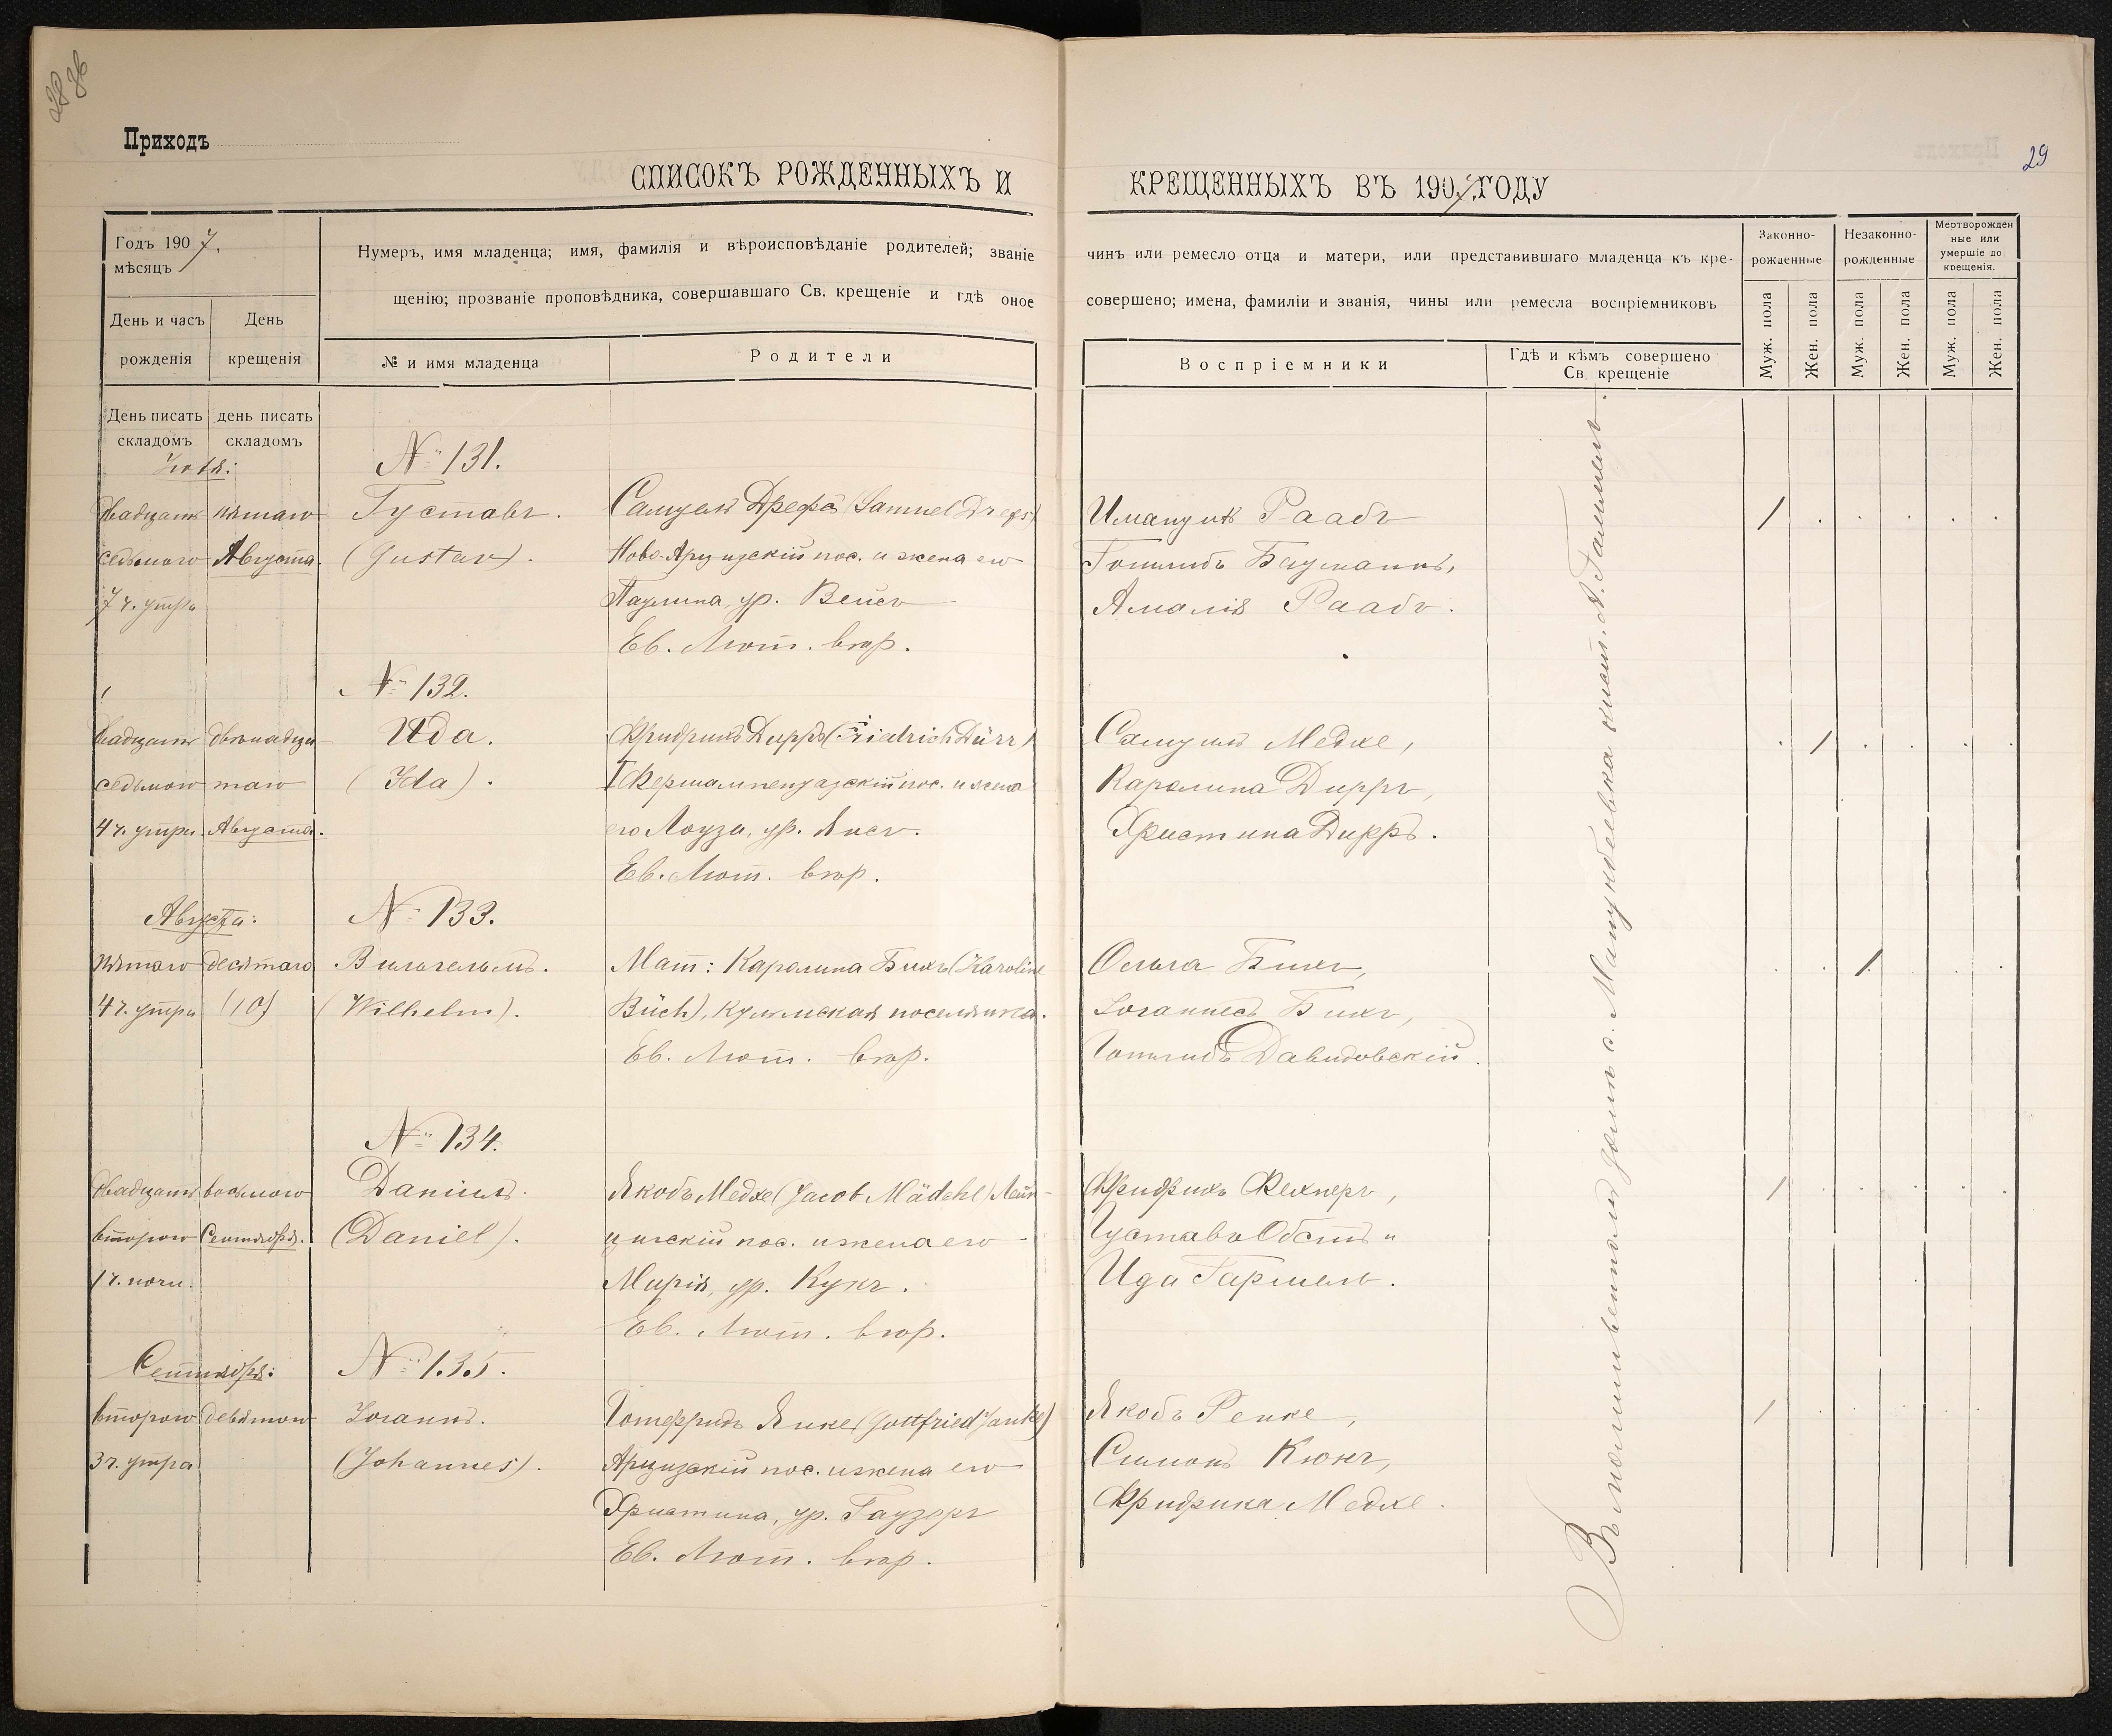 28 36
Приходъ
29
СПИСОКЪ РОЖДЕННЫХЪ И КРЕЩЕННЫХЪ ВЪ 1907 ГОДУ
Годъ 1907.
мѣсяцъ
День и часъ рожденія
День крещенія
Нумеръ, имя младенца; имя, фамилія и вѣроисповѣданіе родителей; званіе чинъ или ремесло отца и матери, или представившаго младенца къ кре-
щенію; прозваніе проповѣдника, совершавшаго Св. крещеніе и гдѣ оное совершено; имена, фамиліи и званія, чины или ремесла воспріемниковъ
№ и имя младенца
Родители
Воспріемники
Гдѣ и кѣмъ совершено
Св. крещеніе
Законно-
рожденные
Незаконно-
рожденные
Мертворожден
ные или
умершіе до
крещенія.
Муж. пола
Жен. пола
Муж. пола
Жен. пола
Муж. пола
Жен. пола
День писать
складомъ
день писать
складомъ
Іюля:
№ 131.
двадцать пятаго Густавъ. Самуель Дрефсъ (Samuel Drefs) Имануилъ Раабъ 1
седьмого Августа. (Gustav). Ново-Арцизскій пос. и жена его Готлибъ Бауманнъ,
7 ч. утра Паулина, ур. Вейсъ Амалія Раабъ.
Ев. Лют. вѣр.
№ 132.
двадцать двѣнадца Ида. Фридрихъ Дирръ (Friedrich Dürr) Самуилъ Медхе, 1
седьмого таго (Ida). I Фершампенуазскій пос. и жена Каролина Дирръ,
4 ч. утра. Августа. его Лоуза, ур. Янсъ. Христина Дирръ.
Ев. Лют. вѣр.
Августа:
№ 133.
пятаго десятаго Вильгельмъ. Мат: Каролина Бихъ (Karoline Ольга Бихъ, 1
4 ч. утра (10) (Wilhelm). Büch), Кульмская поселянка. Іоганнесъ Бихъ,
Ев. Лют. вѣр. Готлибъ Давидовскій.
№ 134.
двадцать восьмого Даніилъ. Якобъ Медхе (Jacob Mädchl) Лейп- Фридрихъ Фехнеръ, 1
второго Сентября. (Daniel). цигскій пос. и жена его Густавъ Обстъ и
1 ч. ночи. Марія, ур. Кукъ. Ида Гаршель.
Ев. Лют. вѣр.
Сентября:
№ 135.
второго девятого Іоганнъ. Готфридъ Янке (Gottfried Janke) Якобъ Ренке, 1
3 ч. утра (Johannes). Арцизскій пос. и жена его Симонъ Кюнъ,
Христина, ур. Гаузеръ Фридрика Медхе.
Ев. Лют. вѣр.